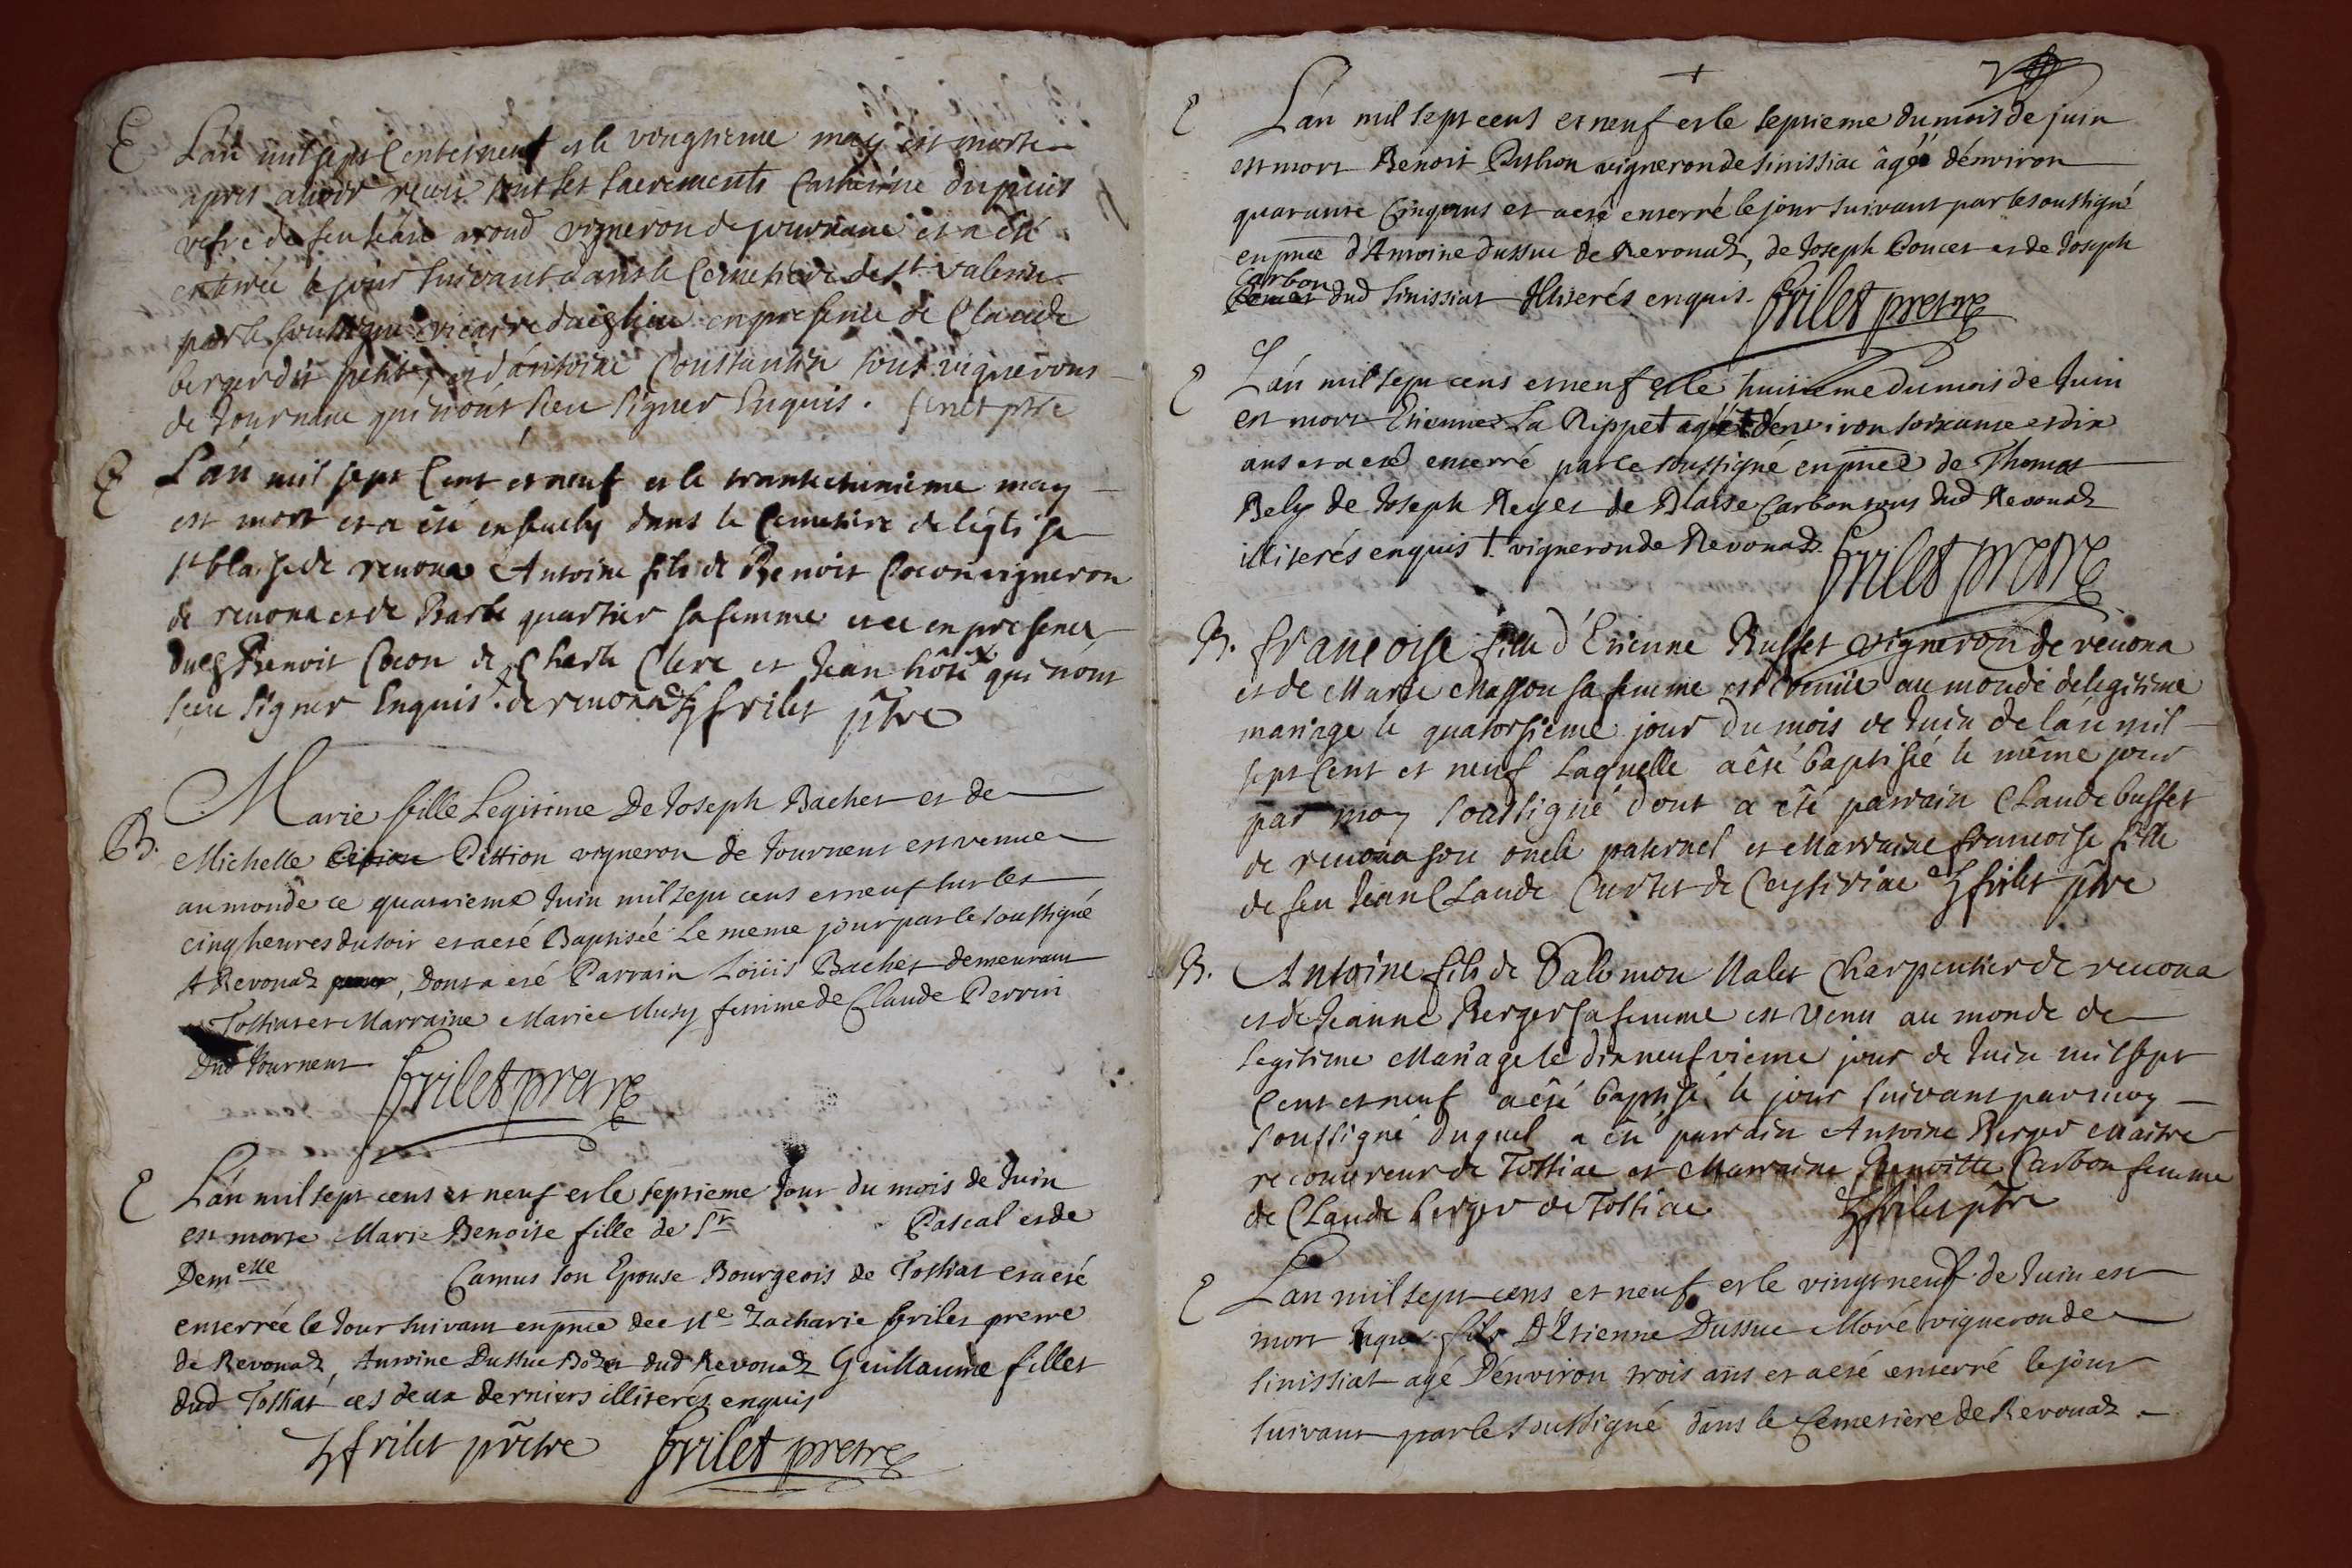 E L'an mil sept cent et neuf et le vingtieme may est morte
apres avoir receu tout les sacrements Catherine dupuis
vefve de feu aroud vigneron de journane et a été
enterrée le jour suivant dans le Cemetiere de st valentin
par le soussigné vicaire en presence de Claude
berger dit petit, et d'antoine Constantin tous vignerons
de Journane qui n'ont sceu signer Enquis. ptre
E L'an mil sept Cent et neuf et le trante et unieme may
est mort et a été ensevely dans le Cemetire de léglise
st blaise de revona Antoine fils de Benoit Cocon vigneron
de revona et de Barbe quartier sa femme et ce en presence
dud Benoit Cocon de Charle Clerc et Jean hôte x qui n'ont
sceu signer Enquis. de revona Z frilet ptre
B. Marie fille Legitime De Joseph Bachet et de
Michelle Pittion vigneron de Tournens est venue
au monde ce quatrieme Juin mil sept cens et neuf sur les
cinq heures du soir et a eté Baptisée Le meme jour par le soussigné
A Revonaz, Dont a eté Parrain Loüis Bachet demeurant
Tossiat et Marraine Marie Musy femme de Claude Perrin
Dud Tournens frilet pretre
E L'an mil sept cens et neuf et le septieme Jour du mois de Juin
est morte Marie Benoite fille de Sr Pascal et de
Demelle Camus son Epouse Bourgeois de Tossiat et a eté
enterrée le Jour suivant en pnce de Me Zacharie frilet pretre
de Revonaz, Antoine Dussuc Bozet dud Revonaz Guillaume fillet
dud Tossiat ces deux derniers illiterés enquis
Z frilet prêtre frilet pretre
+
E L'an mil sept cens et neuf et le septieme du mois de juin
est mort Benoit Pithon vigneron de Sinissiac âgé d'énviron
quarante Cinq ans et a eté enterré le jour suivant par le soussigné
en pnce d'Antoine dussuc de Revonaz, de Joseph Poncet et de Joseph
Carbon
dud Sinissiat Illiterés enquis. frilet pretre
E L'an mil sept cens et neuf et le huitieme du mois de Juin
est mort Etienne La Rippe t agé d'énviron soixante et dix
ans et a eté enterré par le soussigné en pnce de Thomas
Bely de Joseph Reyet de Blaise Carbon tous dud Revonaz
illiterés enquis t. vigneron de Revonaz. frilet pretre
B. francoise fille d'Etienne Buffet vigneron de revona
et de Marie Masson sa femme est venüe au monde de legitime
mariage le quatorsieme jour du mois de Juin de l'an mil
sept Cent et neuf Laquelle a été baptisée le même jour
par moy soussigné dont a été parrain Claude buffet
de revona son oncle paternel et Marraine francoise fille
de feu Jean Claude Curtet de Ceysiriac Z frilet ptre
B. Antoine fils de Salomon Nalet Charpentier de revona
et de Jeanne Berger sa femme est venu au monde de
legitime Mariage le dix neufvieme jour de Juin mil sept
Cent et neuf a été baptisé le jour suivant par moy
soussigné duquel a été parrain Antoine Berger Maitre
recouvreur de Tossiac et Marraine Carbon femme
de Claude berger de Tossiac Z frilet ptre
E L'an mil sept cens et neuf et le vingt neuf de Juin est
mort fils D'Etienne Dussuc Moré vigneron de
Sinissiat agé D'énviron trois ans et a eté enterré le jour
suivant par le soussigné dans le Cemetière de Revonaz.